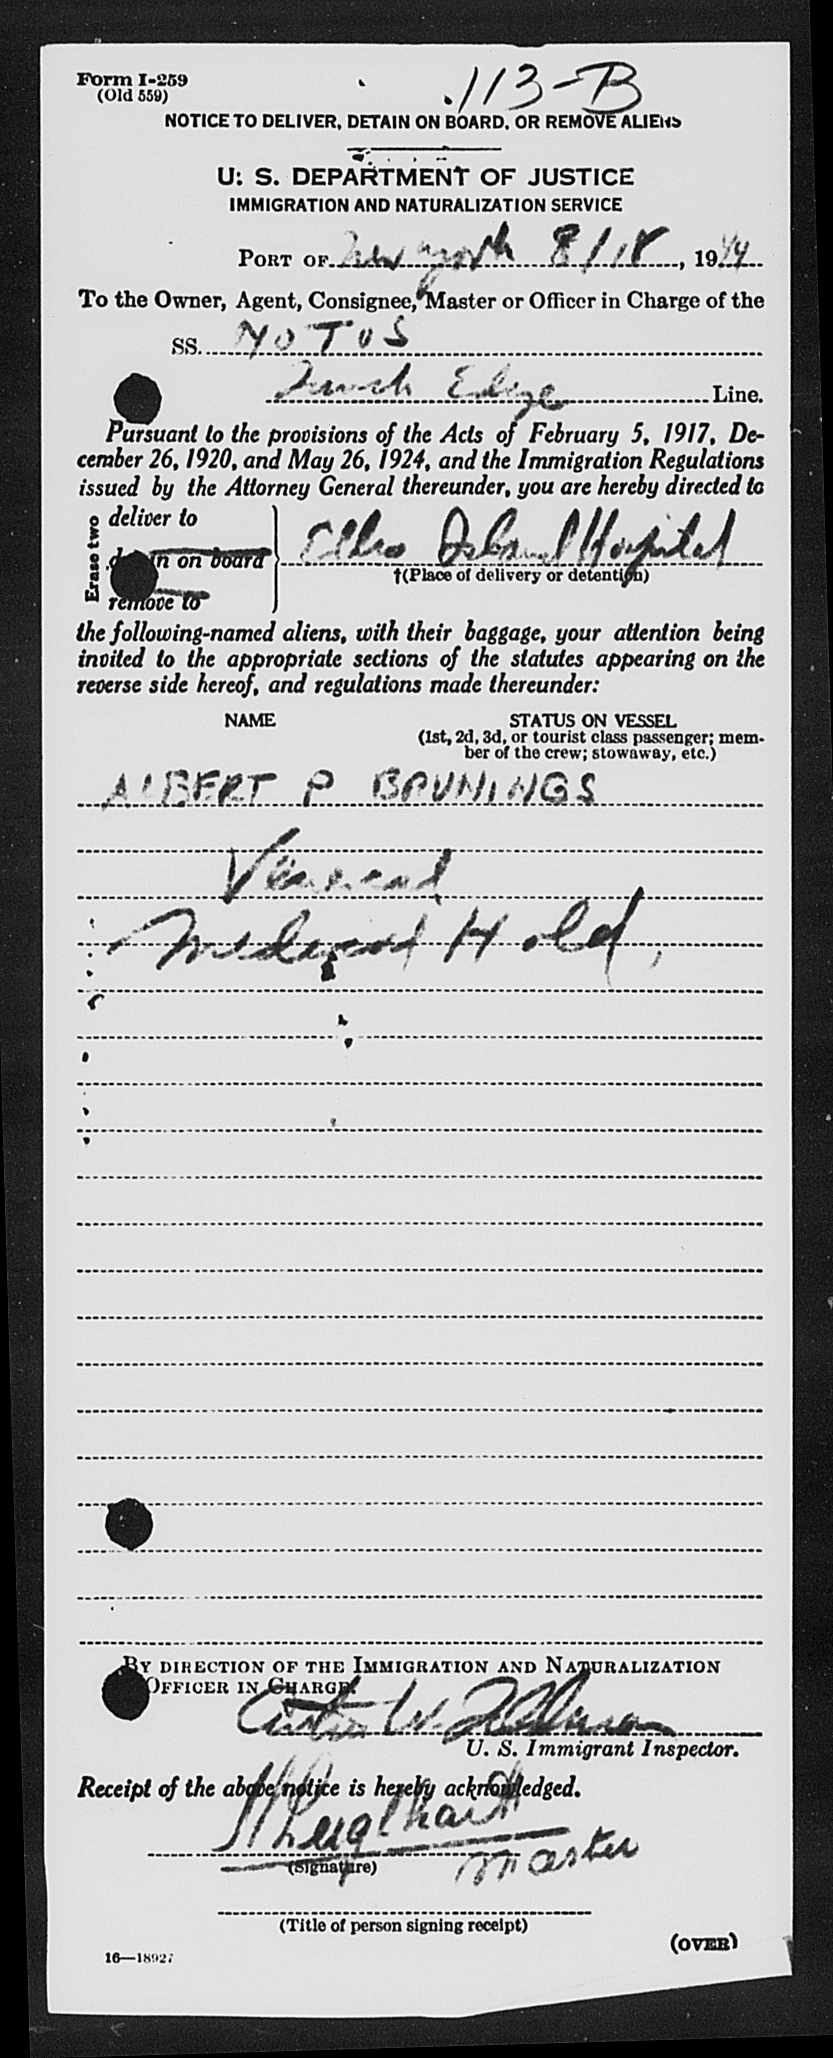 Form I-259
(Old 559)
113-B
NOTICE TO DELIVER, DETAIN ON BOARD, OR REMOVE ALIENS
U. S. DEPARTMENT OF JUSTICE
IMMIGRATION AND NATURALIZATION SERVICE
PORT OF New York 8/18, 1944
To the Owner, Agent, Consignee, Master or Officer in Charge of the
SS. NOTOS
Line.
Pursuant to the provisions of the Acts of February 5, 1917, De-
cember 26, 1920, and May 26, 1924, and the Immigration Regulations
issued by the Attorney General thereunder, you are hereby directed to
Erase two
deliver to
n on board
remove to
Ellis Island Hospital
†(Place of delivery or detention)
the following-named aliens, with their baggage, your attention being
invited to the appropriate sections of the statutes appearing on the
reverse side hereof, and regulations made thereunder:
NAME STATUS ON VESSEL
(1st, 2d, 3d, or tourist class passenger; mem-
ber of the crew; stowaway, etc.)
ALBERT P BRUNINGS
Venereal
Medical Hold,
BY DIRECTION OF THE IMMIGRATION AND NATURALIZATION
OFFICER IN CHARGE.
U. S. Immigrant Inspector.
Receipt of the above notice is hereby acknowledged.
Master
(Signature)
(Title of person signing receipt)
(OVER)
16—18927